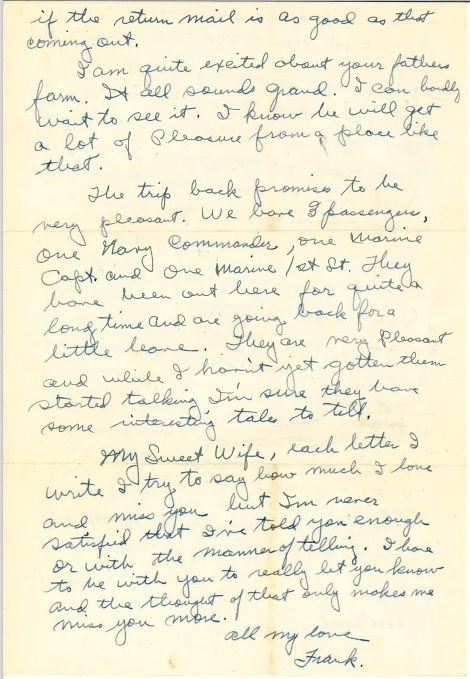 if the return mail is as good as that
coming out.
I am quite excited about your fathers
farm. It all sounds grand. I can hardly
wait to see it. I know he will get
a lot of Pleasure from a place like
that.
The trip back promises to be
very pleasant. We have 3 passengers,
one Navy Commander, one Marine
Capt. and One Marine 1st Lt. They
have been out here for quite a
long time and are going back for a
little leave. They are very Pleasant
and while I havn't yet gotten them
started talking I'm sure they have
some interesting tales to tell.
My Sweet Wife, each letter I
write I try to say how much I love
and miss you but I'm never
satisfied that I've told you enough
or with the manner of telling. I have
to be with you to really let you know
and the thought of that only makes me
miss you more.
all my love
Frank.